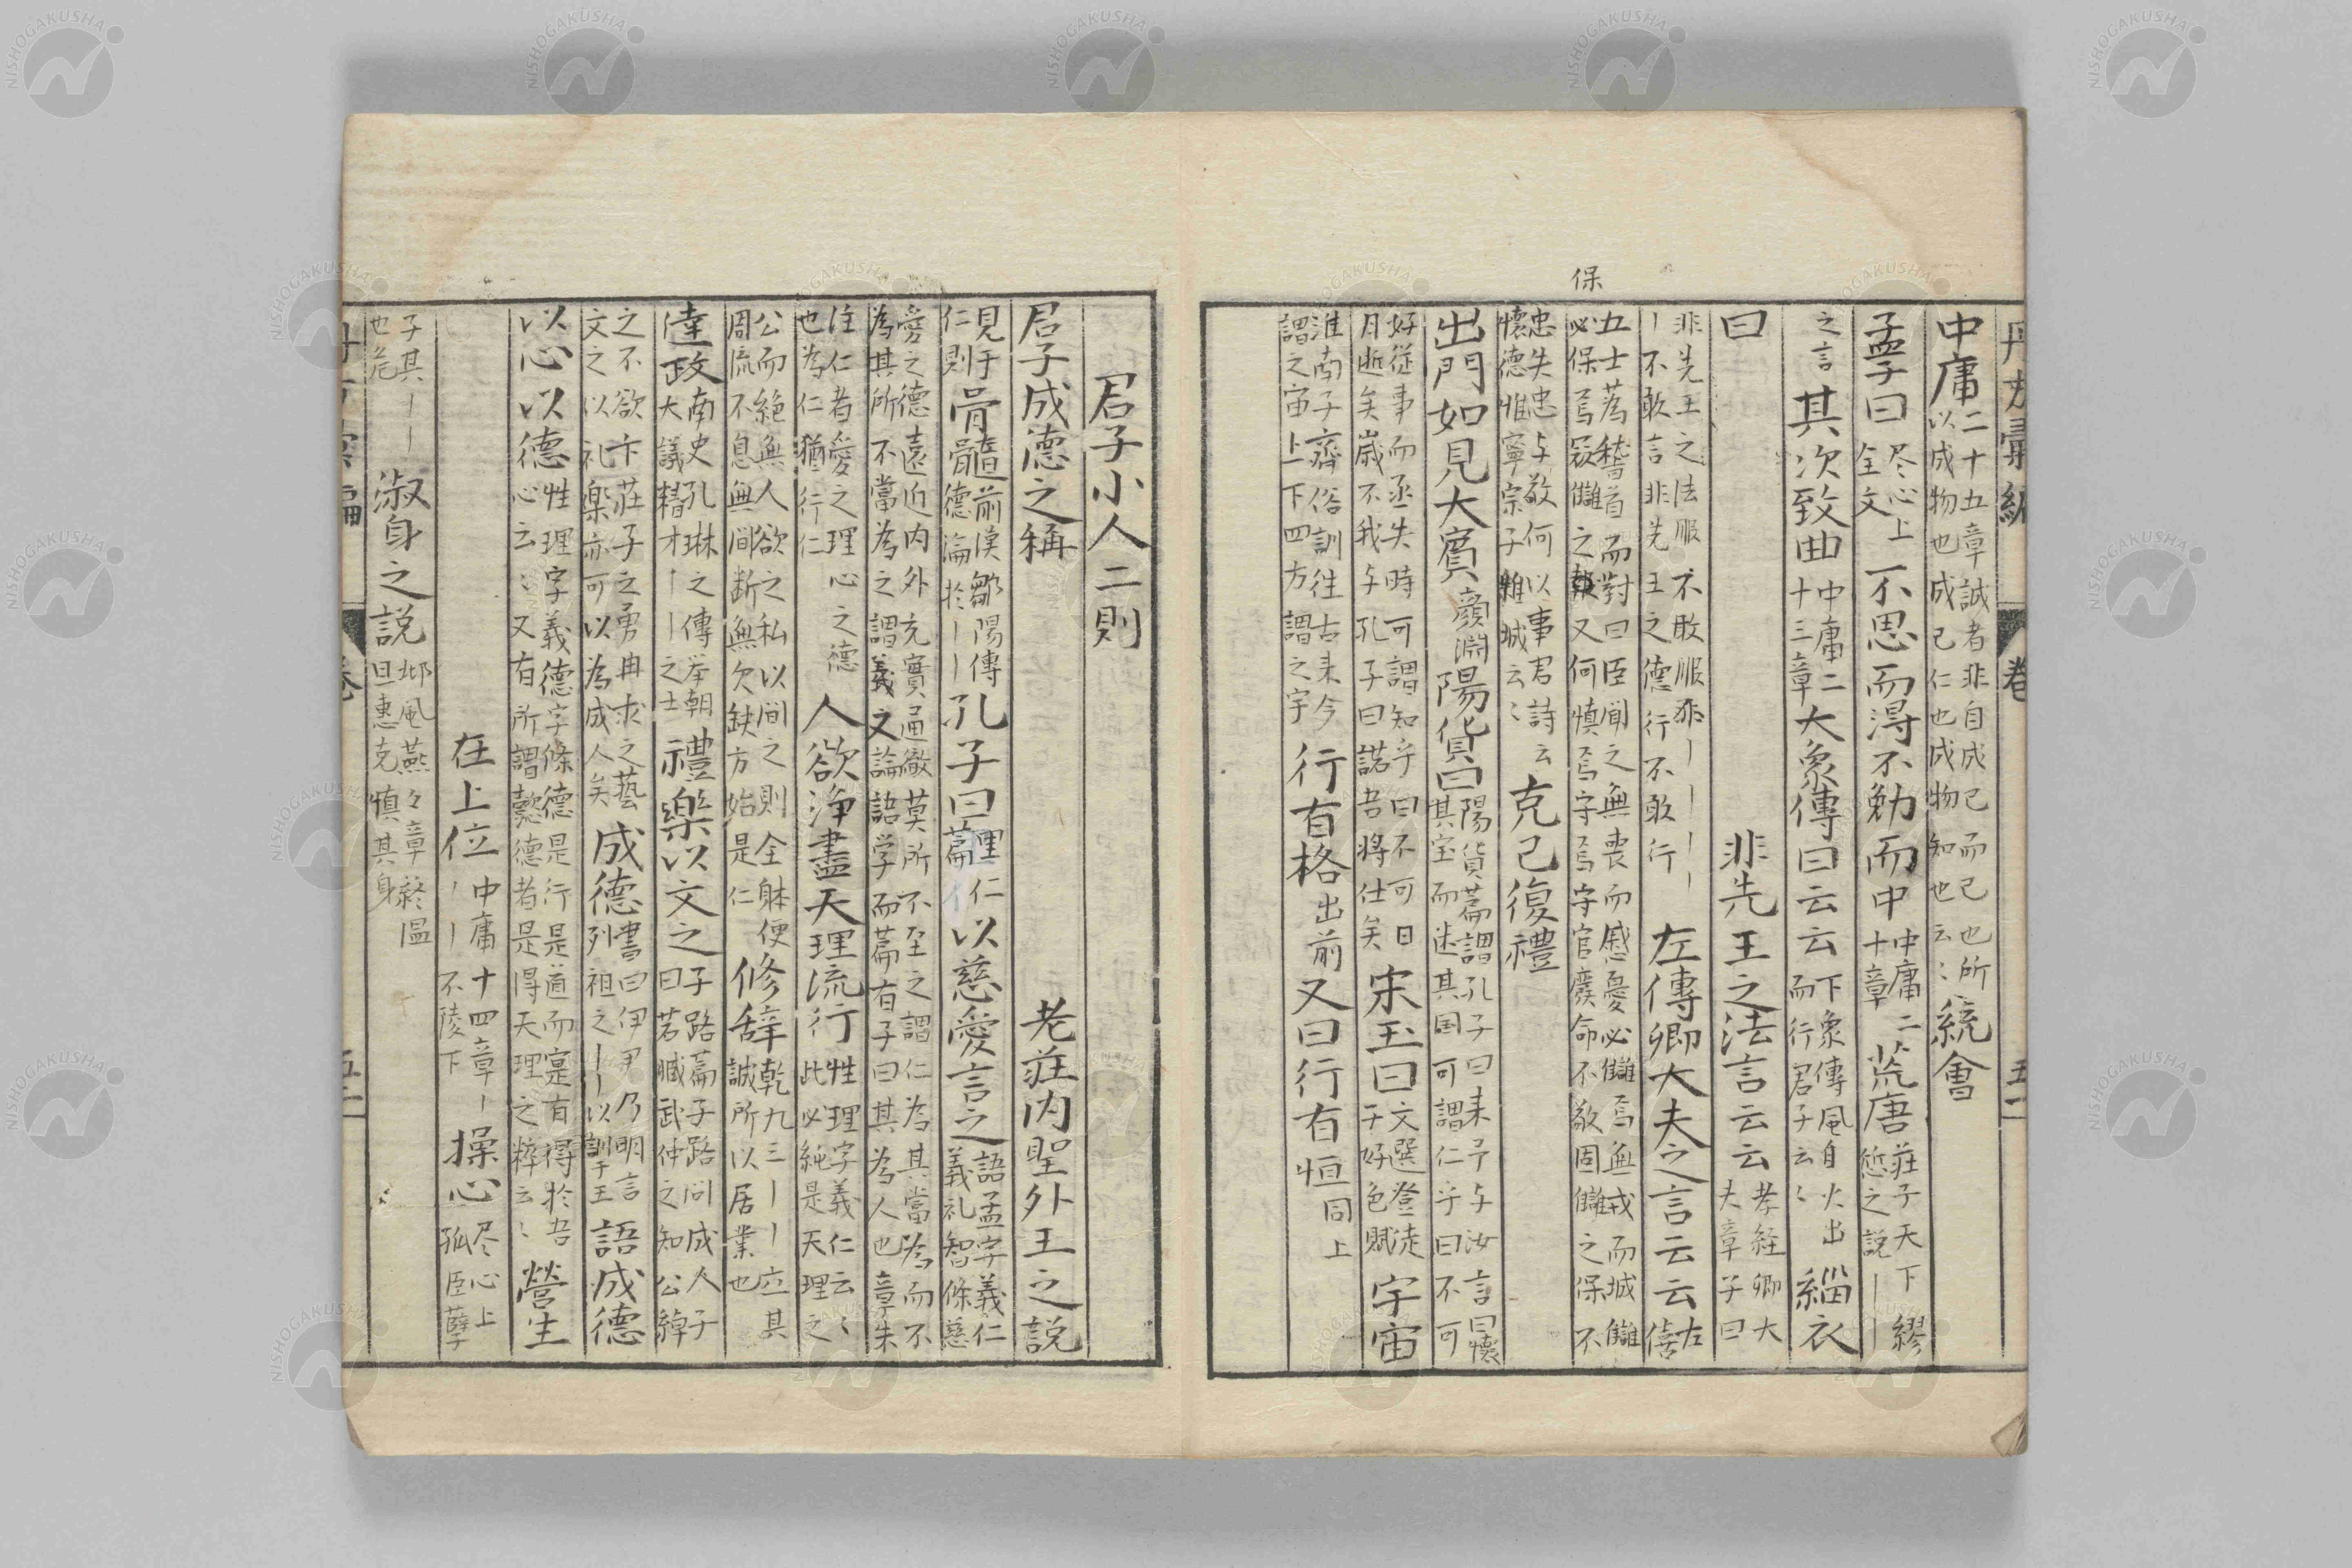 保
中庸二十五章誠者非自成己而已也所以成物也成己仁也成物知也云〻統會
孟子曰尽心上全文不思而得不勉而中中庸二十章荒唐莊子天下繆悠之説｜｜
之言其次致曲中庸二十三章大象傳曰云云下象傳風自火出而行君子云〻緇衣
曰 非先王之法言云云孝経卿大夫章子曰
非先王之法服不敢服非｜｜｜｜｜不敢言非先王之德行不敢行 左傳卿大夫之言云云左僖
五士蒍稽首而對曰臣聞之無喪而慼憂必讎焉無戎而城讎必保焉寇讎之保又何慎焉守焉守官廢命不敬固讎之保不
忠失忠与敬何以事君詩云懷德惟寧宗子維城云〻克己復禮
出門如見大賓顔淵陽貨曰陽貨篇謂孔子曰来予与汝言曰懷其宝而迷其国可謂仁乎曰不可
好從事而亟失時可謂知乎曰不可日月逝矣歲不我与孔子曰諾吾將仕矣宋玉曰文選登徒子好色賦宇宙
淮南子齊俗訓往古来今謂之宙上下四方謂之宇行有格出前又曰行有恒同上
君子小人二則
君子成德之稱 老莊内聖外王之説
見于仁則骨髓前漢鄒陽傳德淪於｜｜孔子曰里仁篇以慈愛言之語孟字義仁義礼智條慈
愛之德遠近内外充實通徹莫所不至之謂仁為其當為而不為其所不當為之謂義又論語学而篇有子曰其為人也章朱
注仁者愛之理心之德也為仁猶行仁人欲浄盡天理流行性理字義仁云〻此必純是天理之
公而絶無人欲之私以間之則全躰便周流不息無間断無欠缺方始是仁修辞乾九三｜｜立其誠所以居業也
達政南史孔琳之傳举朝大議轄才｜｜之士禮樂以文之子路篇子路问成人子曰若臧武仲之知公綽
之不欲卞莊子之勇冉求之藝文之以礼樂亦可以為成人矣成德書曰伊尹乃明言列祖之｜｜以訓于王語成德
以心以德性理字義德字條德是行是道而寔有得於吾心云〻又有所謂懿德者是得天理之粋云〻營生
在上位中庸十四章｜｜｜不陵下操心尽心上孤臣孽
子其｜｜也危淑身之説邶風燕々章終温且惠克慎其身